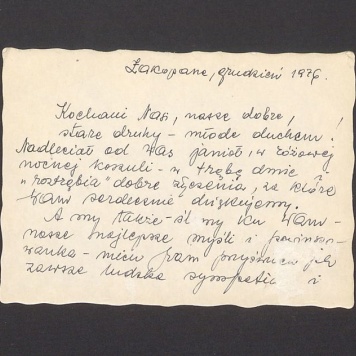 Zakopane, grudzień 1976.
Kochani Nasi, nasze dobre,
stare druhy - młode duchem!
Nadleciał od Was janioł, w różowej
nocnej koszuli - w trąbę dmie i
"roztrąbia" dobre życzenia, za które
Wam serdecznie dziękujemy.
A my także - ślemy ku Wam -
nasze najlepsze myśli i powinszo-
wanka - niech Wam przyświeca jak
zawsze ludzka sympatia i